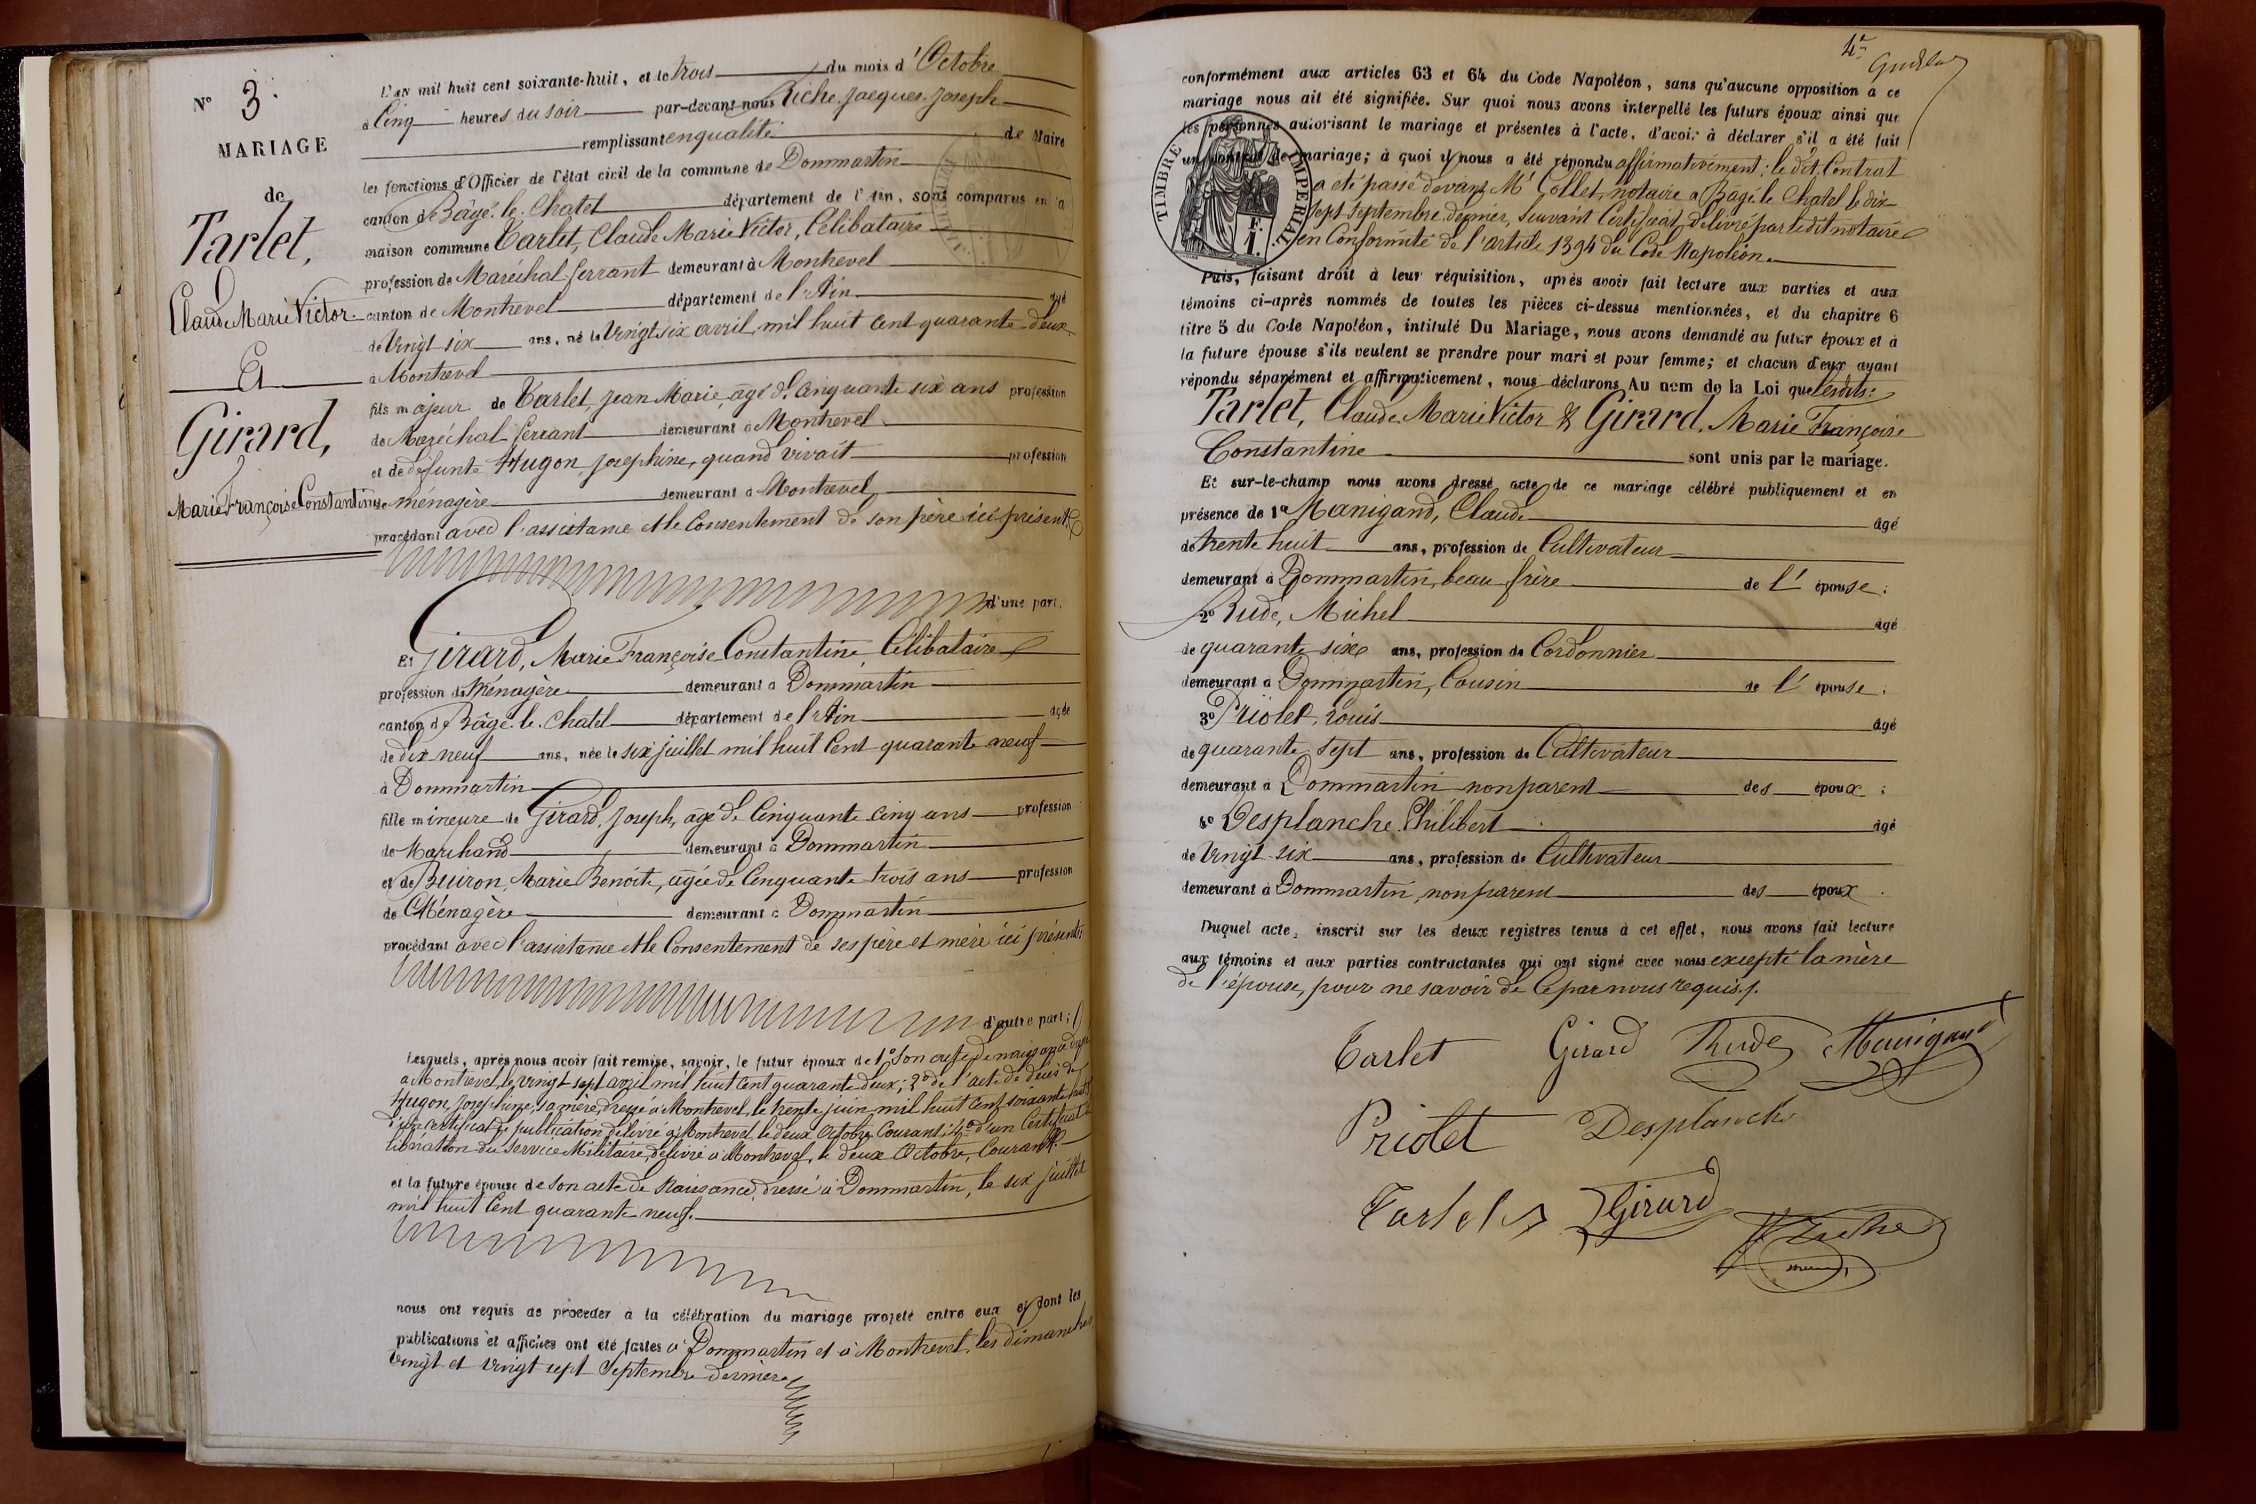 N° 3.
MARIAGE
de
Tarlet,
Claude Marie Victor
Et
Girard,
Marie Françoise Constantine
L'an mil huit cent soixante-huit, et le trois du mois d'Octobre
à Cinq heures du soir par-devant nous Riche Jacques Joseph
remplissant en qualité de Maire
les fonctions d'Officier de l'état civil de la commune de Dommartin
canton de Bâgé le Chatel département de l'Ain, sont comparus en la
maison commune Tarlet, Claude Marie Victor, Célibataire
profession de Maréchal ferrant demeurant à Montrevel
canton de Montrevel département de l'Ain âgé
de Vingt six ans, né le Vingt six avril mil huit cent quarante deux
à Montrevel
fils majeur de Tarlet, Jean Marie, agé de Cinquante six ans profession
de Maréchal ferrant demeurant à Montrevel
et de défunte Hugon Josephine, quand vivait profession
de ménagère demeurant à Montrevel
procédant avec l'assistance et le Consentement de son père ici présent
d'une part.
Et Girard, Marie Françoise Constantine, Célibataire
profession de Ménagère demeurant à Dommartin
canton de Bâgé le Chatel département de l'Ain âgée
de dix neuf ans, née le six juillet mil huit Cent quarante neuf
à Dommartin
fille mineure de Girard, Joseph, agé de Cinquante cinq ans profession
de Marchand demeurant à Dommartin
et de Beuron, Marie Benoite, agée de Cinquante trois ans profession
de Ménagère demeurant à Dommartin
procédant avec l'assistance et le Consentement de ses père et mère ici présents
d'autre part;
Lesquels, après nous avoir fait remise, savoir, le futur époux de 1° Son acte de naissance
à Montrevel, le vingt sept avril mil huit cent quarante deux; 2° de l'acte de décès de
Hugon, Josephine, sa mère, dressé à Montrevel, le trente juin mil huit cent soixante huit
d'un certificat de publication délivré à Montrevel, le deux Octobre Courant; 4° d'un Certificat de
libération du service Militaire, délivré à Montrevel, le deux Octobre, Courant.
et la future épouse de son acte de Naissance, dressé à Dommartin, le six juillet
mil huit Cent quarante neuf.
nous ont requis de procéder à la célébration du mariage projeté entre eux et dont les
publications et affiches ont été faites à Dommartin et à Montrevel, les dimanches
Vingt et Vingt sept Septembre dernier
conformément aux articles 63 et 64 du Code Napoléon, sans qu'aucune opposition à ce
mariage nous ait été signifiée. Sur quoi nous avons interpellé les futurs époux ainsi que
les personnes autorisant le mariage et présentes à l'acte, d'avoir à déclarer s'il a été fait
un contrat de mariage; à quoi il nous a été répondu affirmativement; le dit Contrat
a été passé devant Me Collet, notaire à Bagé le Chatel le dix
sept Septembre dernier, Suivant Certificat délivré par ledit notaire
en Conformité de l'article 1394 du Code Napoléon.
TIMBRE IMPERIAL
F.
1.
Puis, faisant droit à leur réquisition, après avoir fait lecture aux parties et aux
témoins ci-après nommés de toutes les pièces ci-dessus mentionnées, et du chapitre 6
titre 5 du Code Napoléon, intitulé Du Mariage, nous avons demandé au futur époux et à
la future épouse s'ils veulent se prendre pour mari et pour femme; et chacun d'eux ayant
répondu séparément et affirmativement, nous déclarons Au nom de la Loi que lesdits:
Tarlet, Claude Marie Victor & Girard, Marie Françoise
Constantine sont unis par le mariage.
Et sur-le-champ nous avons dressé acte de ce mariage célébré publiquement et en
présence de 1° Manigand, Claude âgé
de trente huit ans, profession de Cultivateur
demeurant à Dommartin, beau frère de l'épouse;
2° Rude, Michel âgé
de quarante six ans, profession de Cordonnier
demeurant à Dommartin, Cousin de l'épouse;
3° Priolet, Louis âgé
de quarante sept ans, profession de Cultivateur
demeurant à Dommartin non parent des époux;
4° Desplanche Philibert âgé
de Vingt six ans, profession de Cultivateur
demeurant à Dommartin, non parent des époux.
Duquel acte, inscrit sur les deux registres tenus à cet effet, nous avons fait lecture
aux témoins et aux parties contractantes qui ont signé avec nous excepté la mère
de l'épouse, pour ne savoir de Ce par nous requis.
Tarlet Girard Rude Manigand
Priolet Desplanche
Tarlet Girard